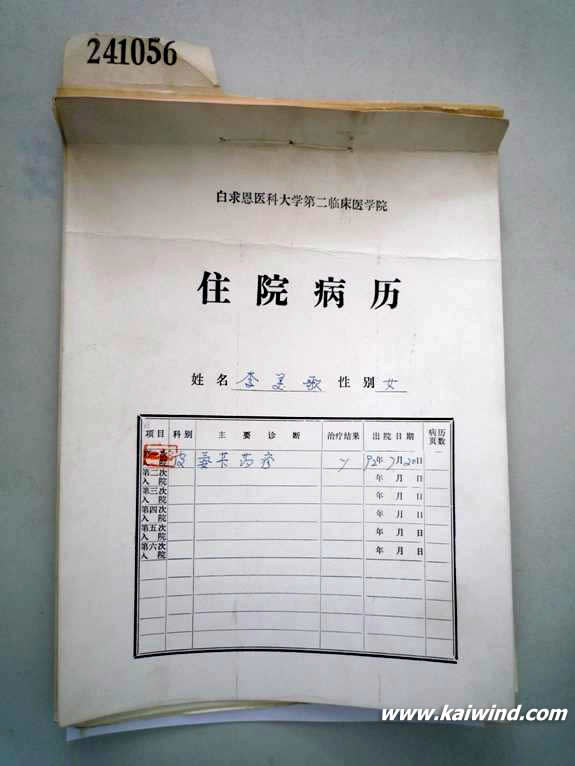 241056
白求恩医科大学第二临床医学院
住院病历
姓名 李美歌 性别 女
项目 科别 主要诊断 治疗结果 出院日期 病历页数
入院 皮 荨麻药疹 92年7月20日
第二次入院 年月日
第三次入院 年月日
第四次入院 年月日
第五次入院 年月日
第六次入院 年月日
www.kaiwind.com